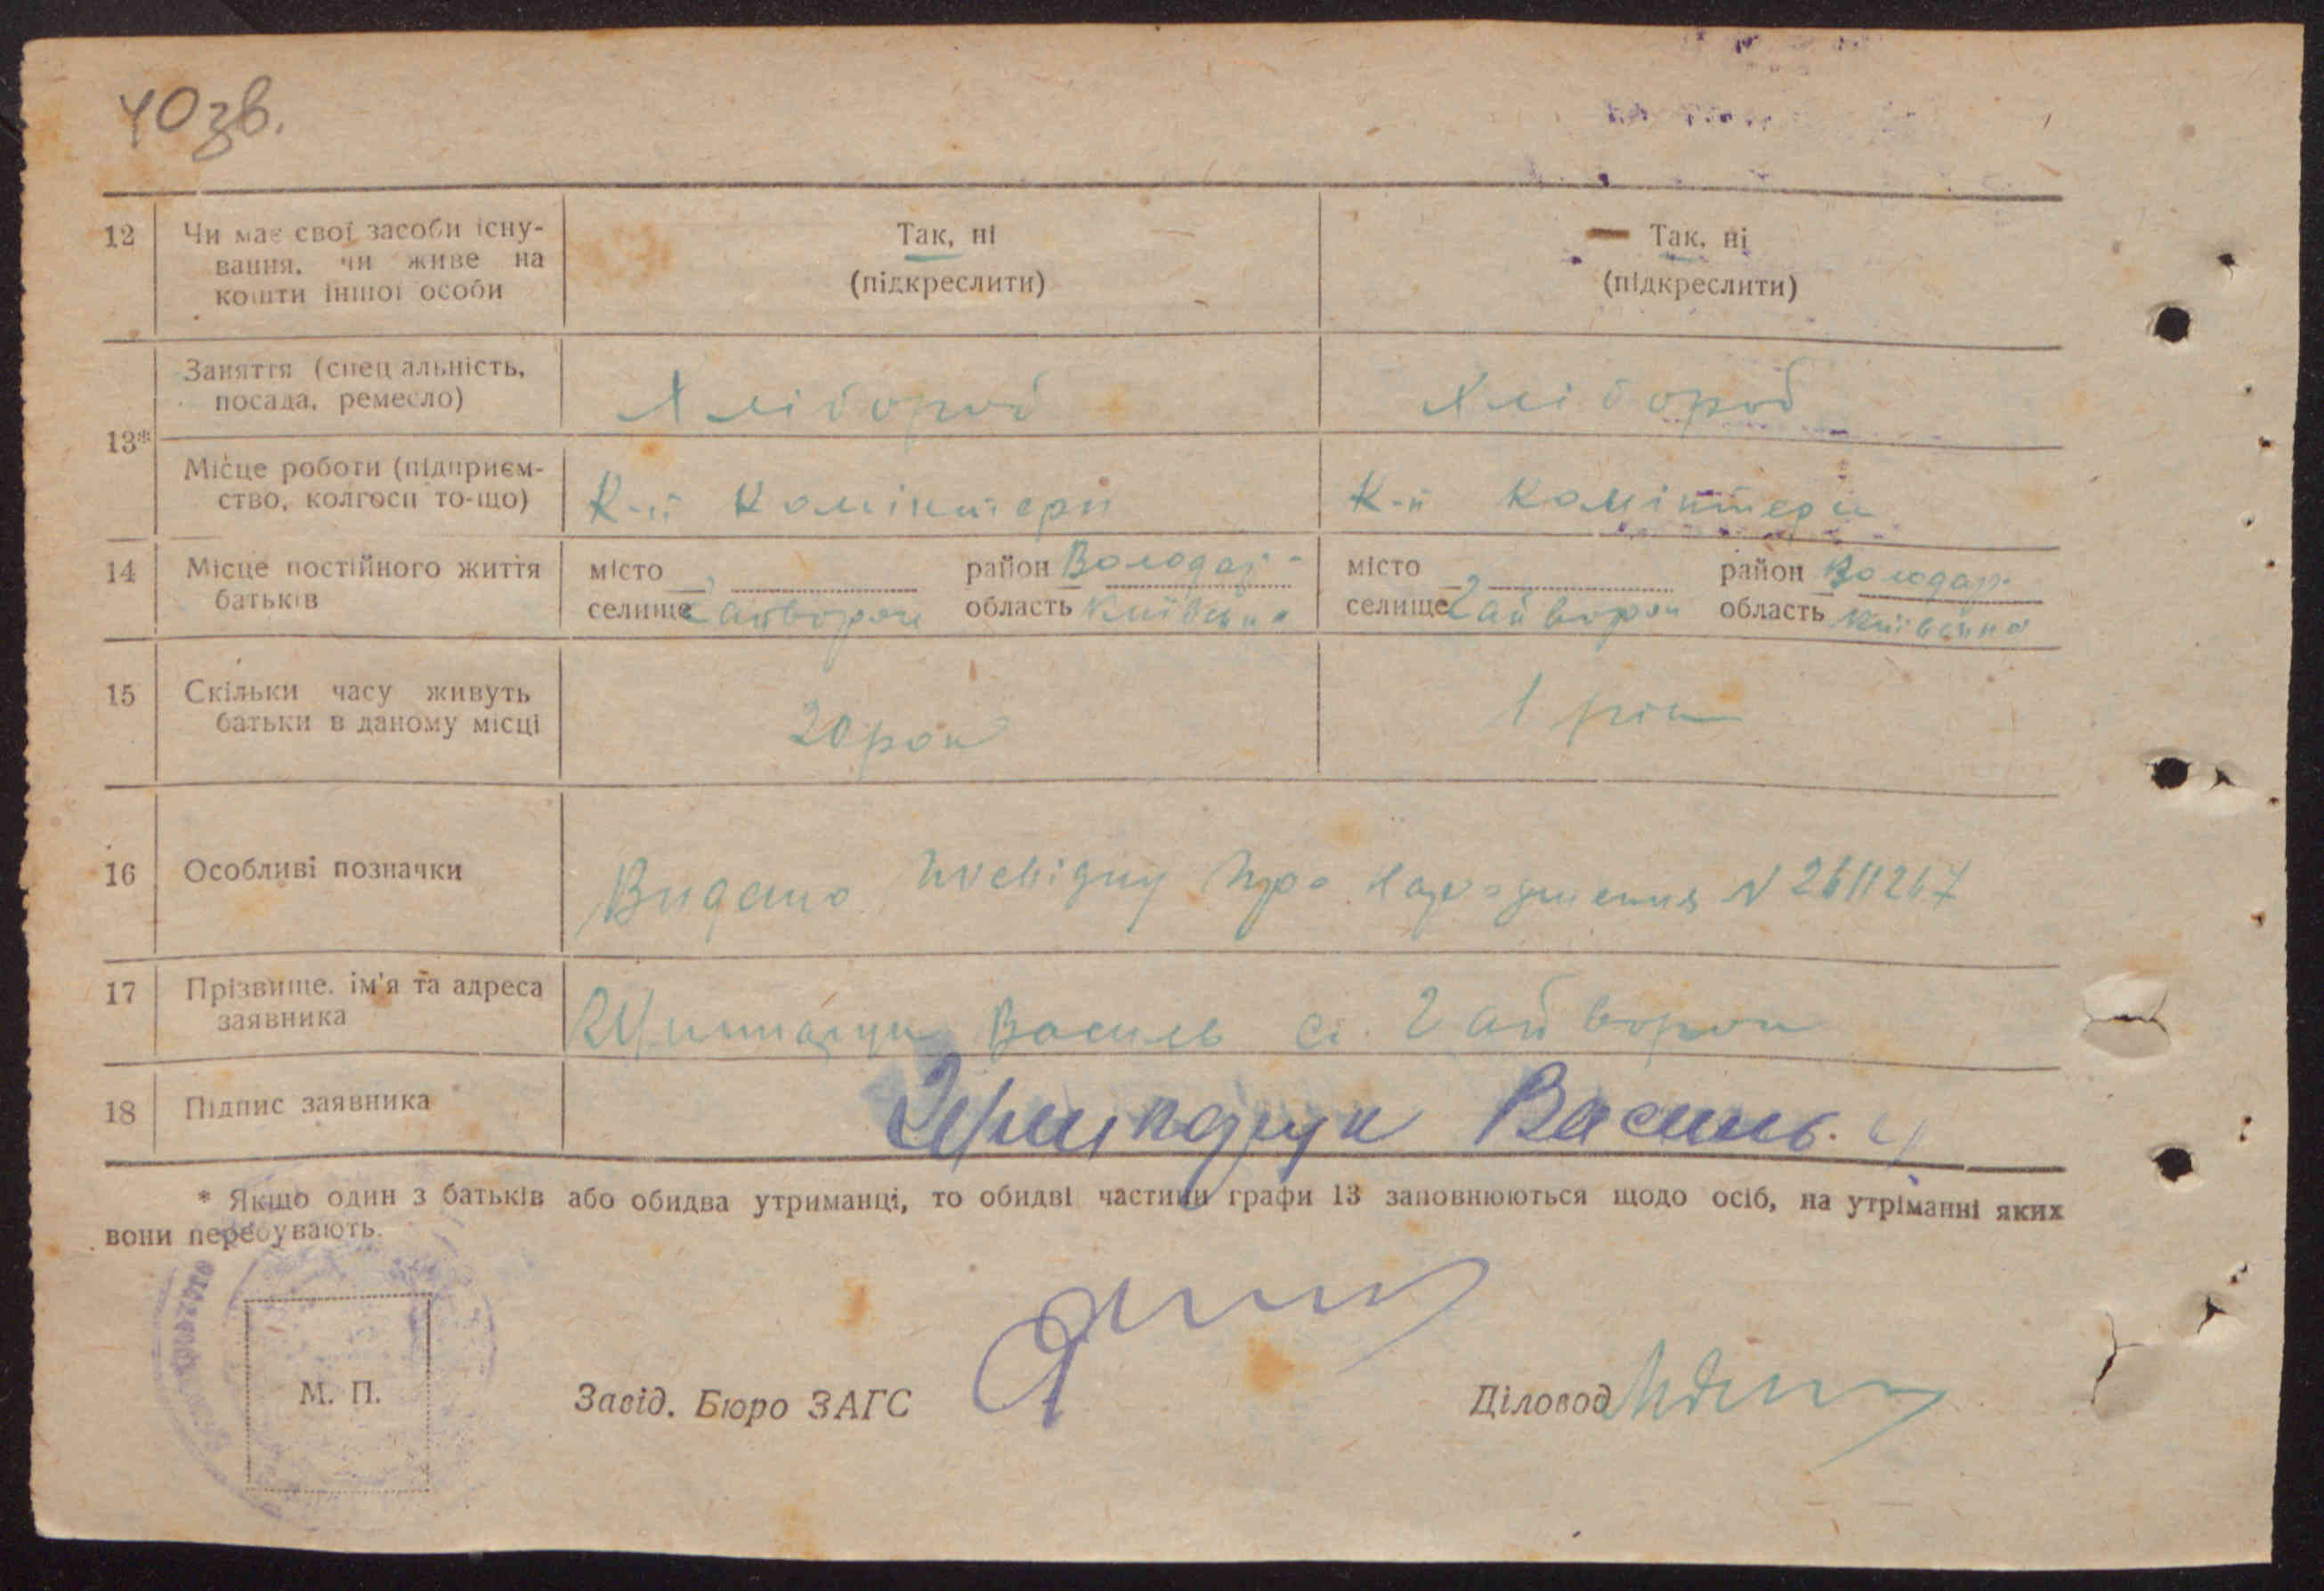 40 зв.
12 Чи має свої засоби існу- Так, ні Так, ні
вання, чи живе на (підкреслити) (підкреслити)
кошти іншої особи
13* Заняття (спец альність, Хлібороб Хлібороб
посада, ремесло)
Місце роботи (підприєм- К-п Комінтерн К-п Комінтерн
ство, колгосп то-що)
14 Місце постійного життя місто район Володар- місто район Володар-
батьків селище Гайворон область Київська селище Гайворон область Київська
15 Скільки часу живуть 20 рок 1 рік
батьки в даному місці
16 Особливі позначки Видано про народження N 2611267
17 Прізвище, ім'я та адреса Василь с. Гайворон
заявника
18 Підпис заявника Василь.
* Якщо один з батьків або обидва утриманці, то обидві частини графи 13 заповнюються щодо осіб, на утріманні яких
вони перебувають.
М. П.
Завід. Бюро ЗАГС Діловод